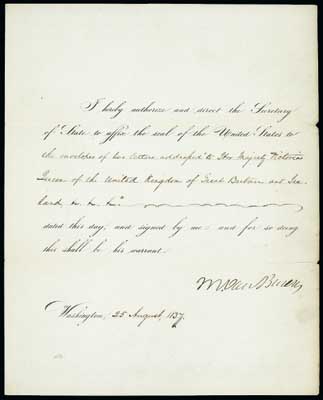 I hereby authorize and direct the Secretary
of State to affix the seal of the United States to
the envelopes of two letters addressed to Her Majesty Victoria
Queen of the United Kingdom of Great Britain and Ire-
land &c. &c. &c.
dated this day, and signed by me: and for so doing
this shall be his warrant.
M. Van Buren
Washington, 25 August, 1837.